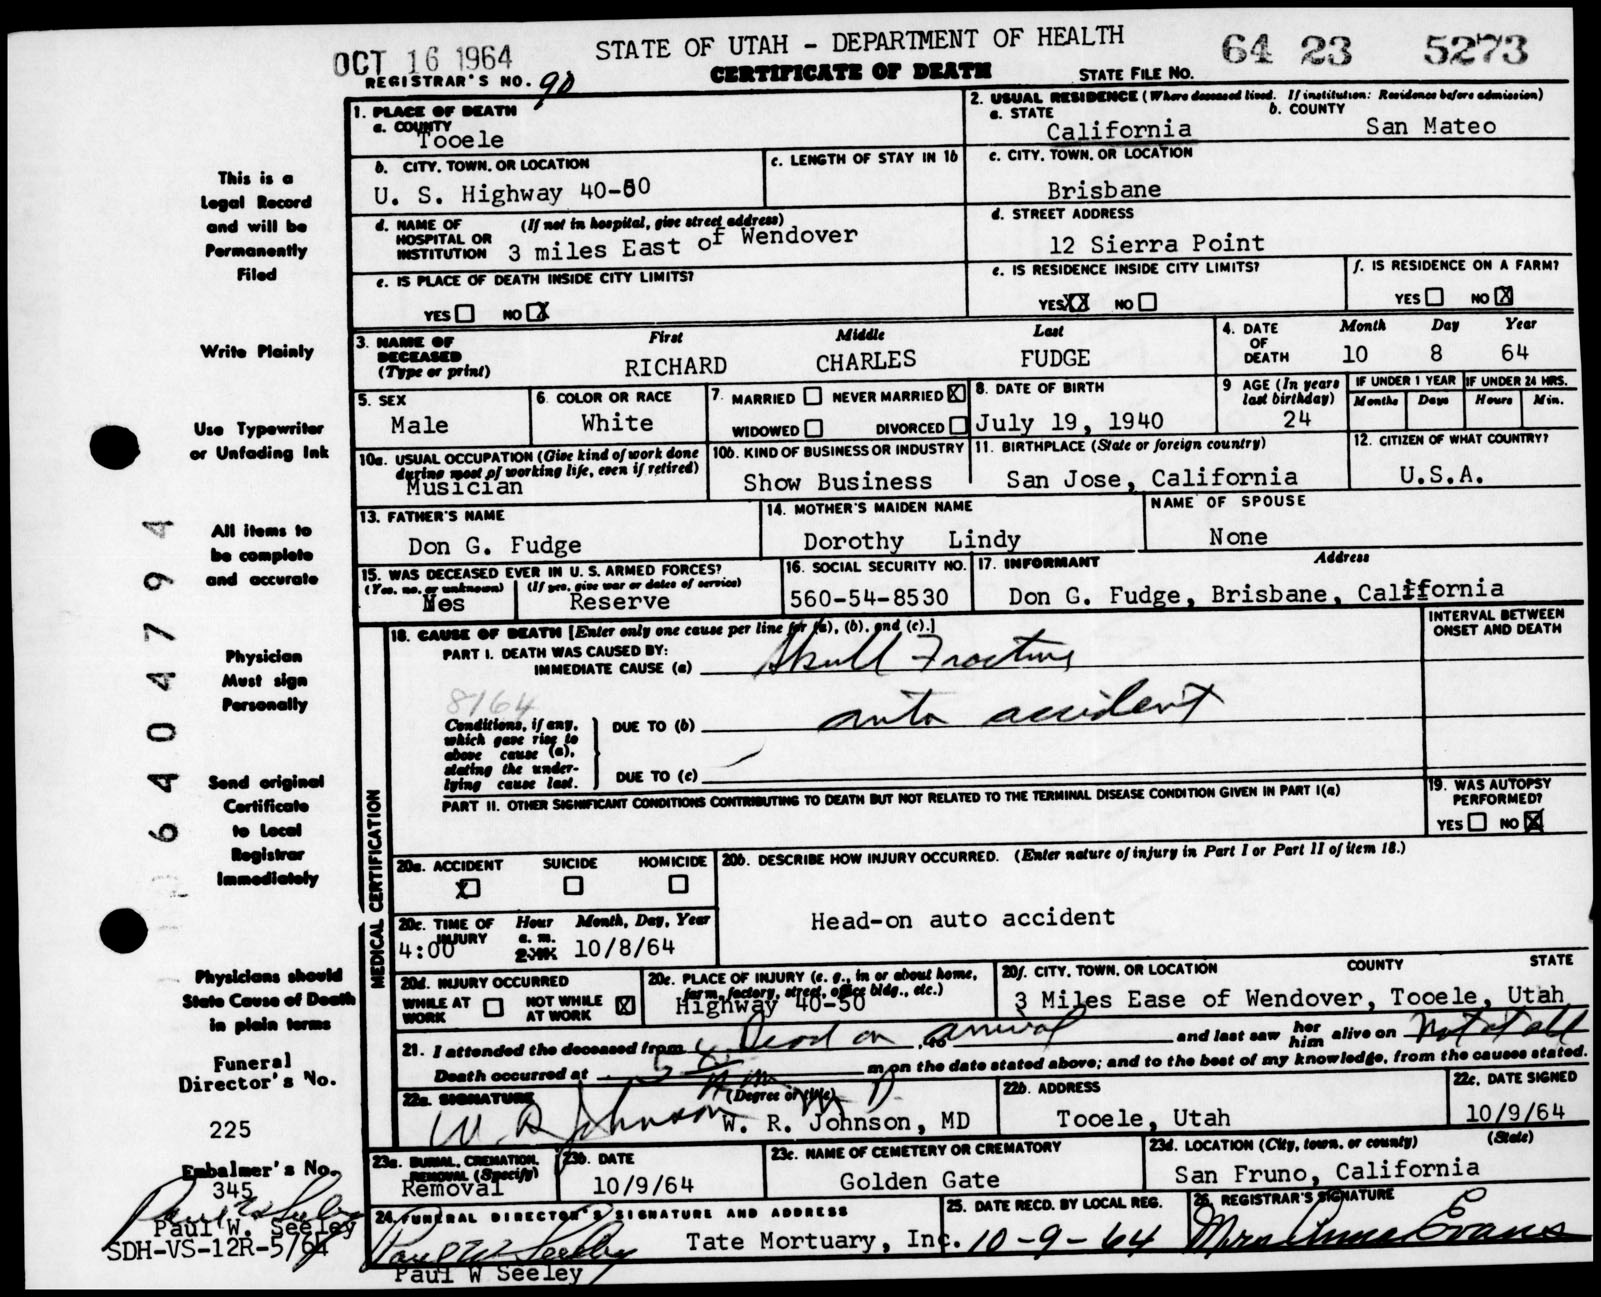 OCT 16 1964
STATE OF UTAH - DEPARTMENT OF HEALTH
64 23 5273
REGISTRAR'S NO. 90
CERTIFICATE OF DEATH
STATE FILE NO.
This is a
Legal Record
and will be
Permanently
Filed
Write Plainly
Use Typewriter
or Unfading Ink
All items to
be complete
and accurate
Physician
Must sign
Personally
Send original
Certificate
to Local
Registrar
Immediately
Physicians should
State Cause of Death
in plain terms
Funeral
Director's No.
225
Embalmer's No.
345
Paul W. Seeley
Paul W. Seeley
SDH-VS-12R-5/64
6404794
1. PLACE OF DEATH
a. COUNTY
Tooele
2. USUAL RESIDENCE (Where deceased lived. If institution: Residence before admission)
a. STATE
California
b. COUNTY
San Mateo
b. CITY, TOWN, OR LOCATION
U. S. Highway 40-50
c. LENGTH OF STAY IN 1b
c. CITY, TOWN, OR LOCATION
Brisbane
d. NAME OF HOSPITAL OR INSTITUTION
(If not in hospital, give street address)
3 miles East of Wendover
d. STREET ADDRESS
12 Sierra Point
e. IS PLACE OF DEATH INSIDE CITY LIMITS?
YES NO X
e. IS RESIDENCE INSIDE CITY LIMITS?
YES XX NO
f. IS RESIDENCE ON A FARM?
YES NO X
3. NAME OF DECEASED
(Type or print)
First Middle Last
RICHARD CHARLES FUDGE
4. DATE OF DEATH
Month Day Year
10 8 64
5. SEX
Male
6. COLOR OR RACE
White
7. MARRIED NEVER MARRIED X
WIDOWED DIVORCED
8. DATE OF BIRTH
July 19, 1940
9 AGE (In years last birthday)
24
IF UNDER 1 YEAR
Months Days
IF UNDER 24 HRS.
Hours Min.
10a. USUAL OCCUPATION (Give kind of work done during most of working life, even if retired)
Musician
10b. KIND OF BUSINESS OR INDUSTRY
Show Business
11. BIRTHPLACE (State or foreign country)
San Jose, California
12. CITIZEN OF WHAT COUNTRY?
U.S.A.
13. FATHER'S NAME
Don G. Fudge
14. MOTHER'S MAIDEN NAME
Dorothy Lindy
NAME OF SPOUSE
None
15. WAS DECEASED EVER IN U. S. ARMED FORCES?
(Yes, no, or unknown) (If yes, give war or dates of service)
Yes Reserve
16. SOCIAL SECURITY NO.
560-54-8530
17. INFORMANT Address
Don G. Fudge, Brisbane, California
18. CAUSE OF DEATH [Enter only one cause per line for (a), (b), and (c).]
INTERVAL BETWEEN ONSET AND DEATH
PART I. DEATH WAS CAUSED BY:
IMMEDIATE CAUSE (a) Skull Fracture
8164
Conditions, if any, which gave rise to above cause (a), stating the underlying cause last.
DUE TO (b) auto accident
DUE TO (c)
PART II. OTHER SIGNIFICANT CONDITIONS CONTRIBUTING TO DEATH BUT NOT RELATED TO THE TERMINAL DISEASE CONDITION GIVEN IN PART I(a)
19. WAS AUTOPSY PERFORMED?
YES NO X
MEDICAL CERTIFICATION
20a. ACCIDENT SUICIDE HOMICIDE
X
20b. DESCRIBE HOW INJURY OCCURRED. (Enter nature of injury in Part I or Part II of item 18.)
Head-on auto accident
20c. TIME OF INJURY
Hour Month, Day, Year
a. m.
4:00 10/8/64
20d. INJURY OCCURRED
WHILE AT WORK NOT WHILE AT WORK X
20e. PLACE OF INJURY (e. g., in or about home, farm, factory, street, office bldg., etc.)
Highway 40-50
20f. CITY, TOWN, OR LOCATION COUNTY STATE
3 Miles Ease of Wendover, Tooele, Utah
21. I attended the deceased from Dead on arrival, to and last saw her him alive on Not at all
Death occurred at 5 A m m on the date stated above; and to the best of my knowledge, from the causes stated.
22a. SIGNATURE (Degree or title)
W R Johnson M D
W. R. Johnson, MD
22b. ADDRESS
Tooele, Utah
22c. DATE SIGNED
10/9/64
23a. BURIAL, CREMATION, REMOVAL (Specify)
Removal
23b. DATE
10/9/64
23c. NAME OF CEMETERY OR CREMATORY
Golden Gate
23d. LOCATION (City, town, or county) (State)
San Fruno, California
24. FUNERAL DIRECTOR'S SIGNATURE AND ADDRESS
Paul W Seeley Tate Mortuary, Inc.
Paul W Seeley
25. DATE RECD. BY LOCAL REG.
10-9-64
26. REGISTRAR'S SIGNATURE
Mrs Anna Evans